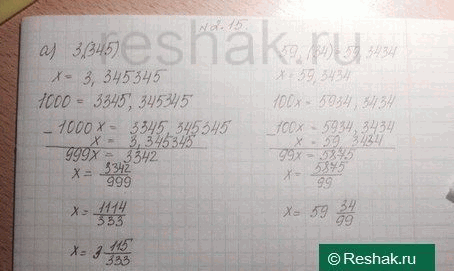 №2.15.
а) 3,(345)
x = 3, 345345
1000 = 3345, 345345
- 1000x = 3345, 345345
x = 3, 345345
999x = 3342
x = 3342/999
x = 1114/333
x = 3 115/333
59,(34) = 59,3434
x = 59,3434
100x = 5934,3434
- 100x = 5934,3434
x = 59, 3434
99x = 5875
x = 5875/99
x = 59 34/99
reshak.ru
Reshak.ru